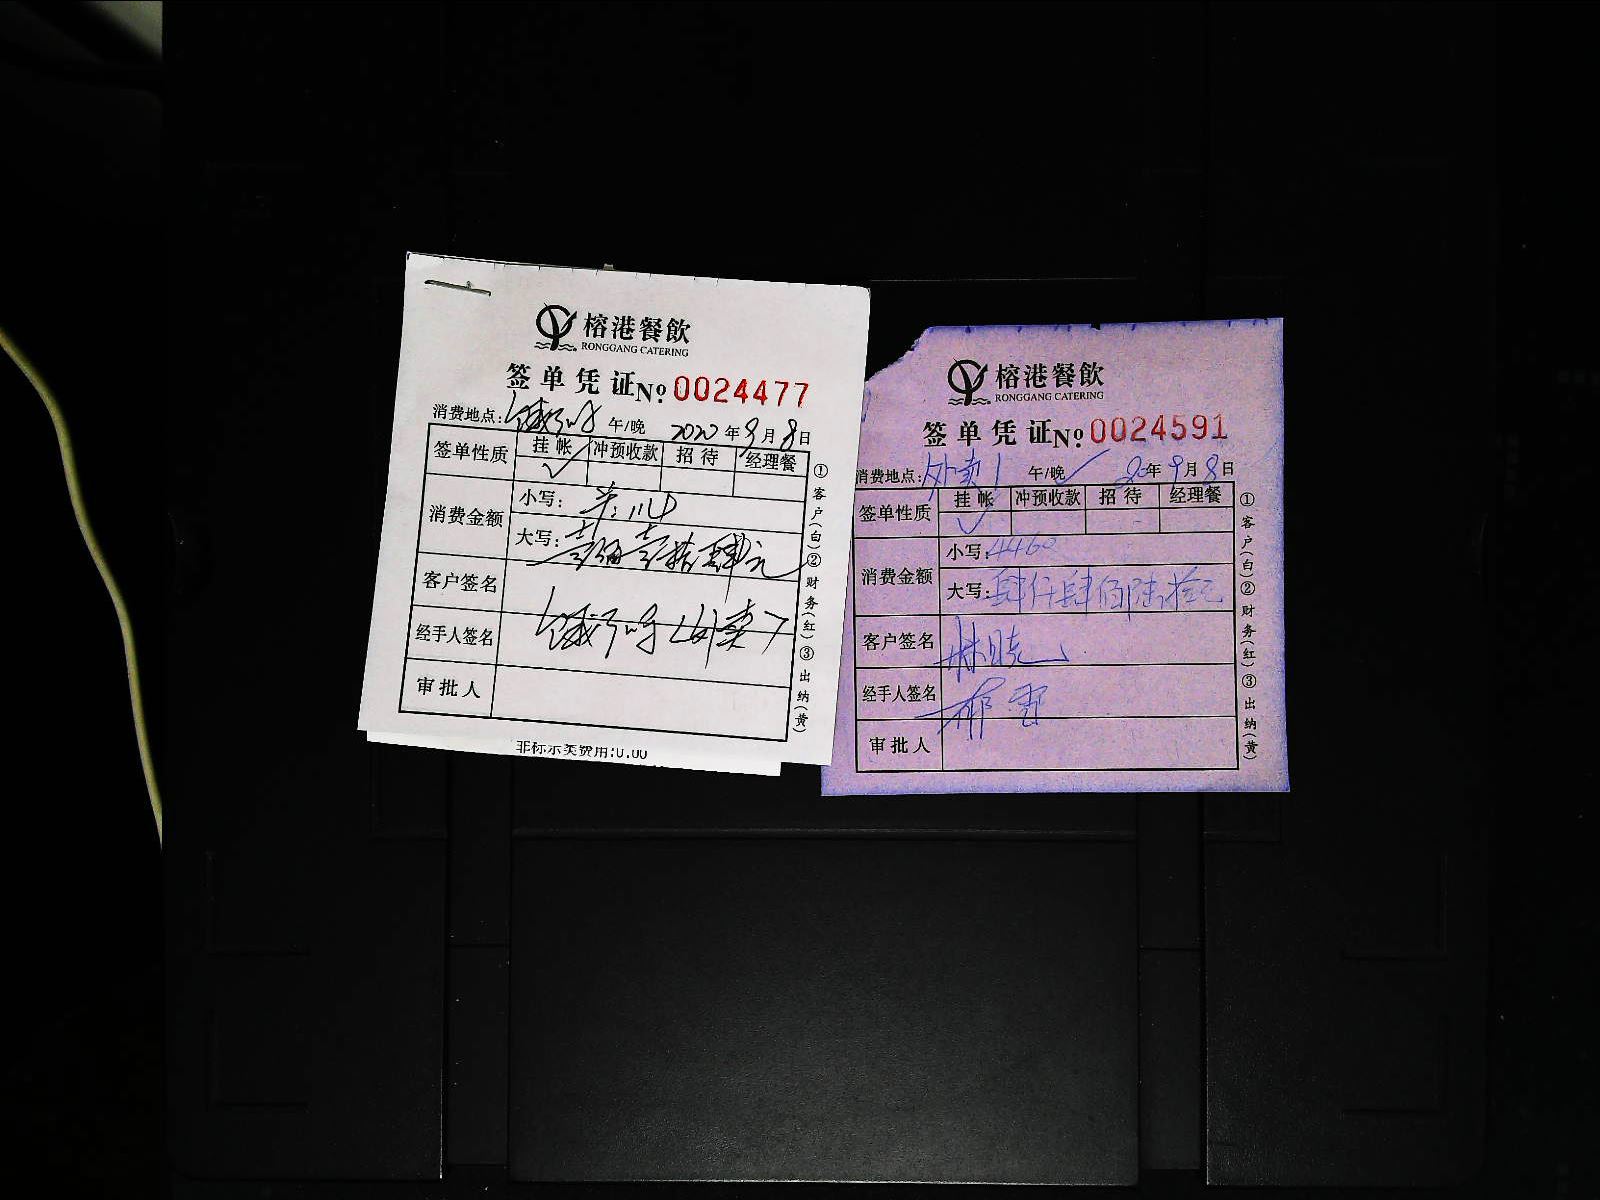 榕港餐飲
RONGGANG CATERING
签单凭证 № 0024477
消费地点: 午/晚 2020年9月8日
签单性质 挂帐 冲预收款 招待 经理餐
✓
消费金额 小写:
大写: 壹佰壹拾肆元
客户签名
经手人签名 (外卖)
审批人
①客户(白)②财务(红)③出纳(黄)
非标示类费用:0.00
榕港餐飲
RONGGANG CATERING
签单凭证 № 0024591
消费地点: 外卖1 午/晚 ✓ 20年9月8日
签单性质 挂帐 冲预收款 招待 经理餐
✓
消费金额 小写: 4460
大写: 肆仟肆佰陆拾元
客户签名 林晓
经手人签名
审批人
①客户(白)②财务(红)③出纳(黄)